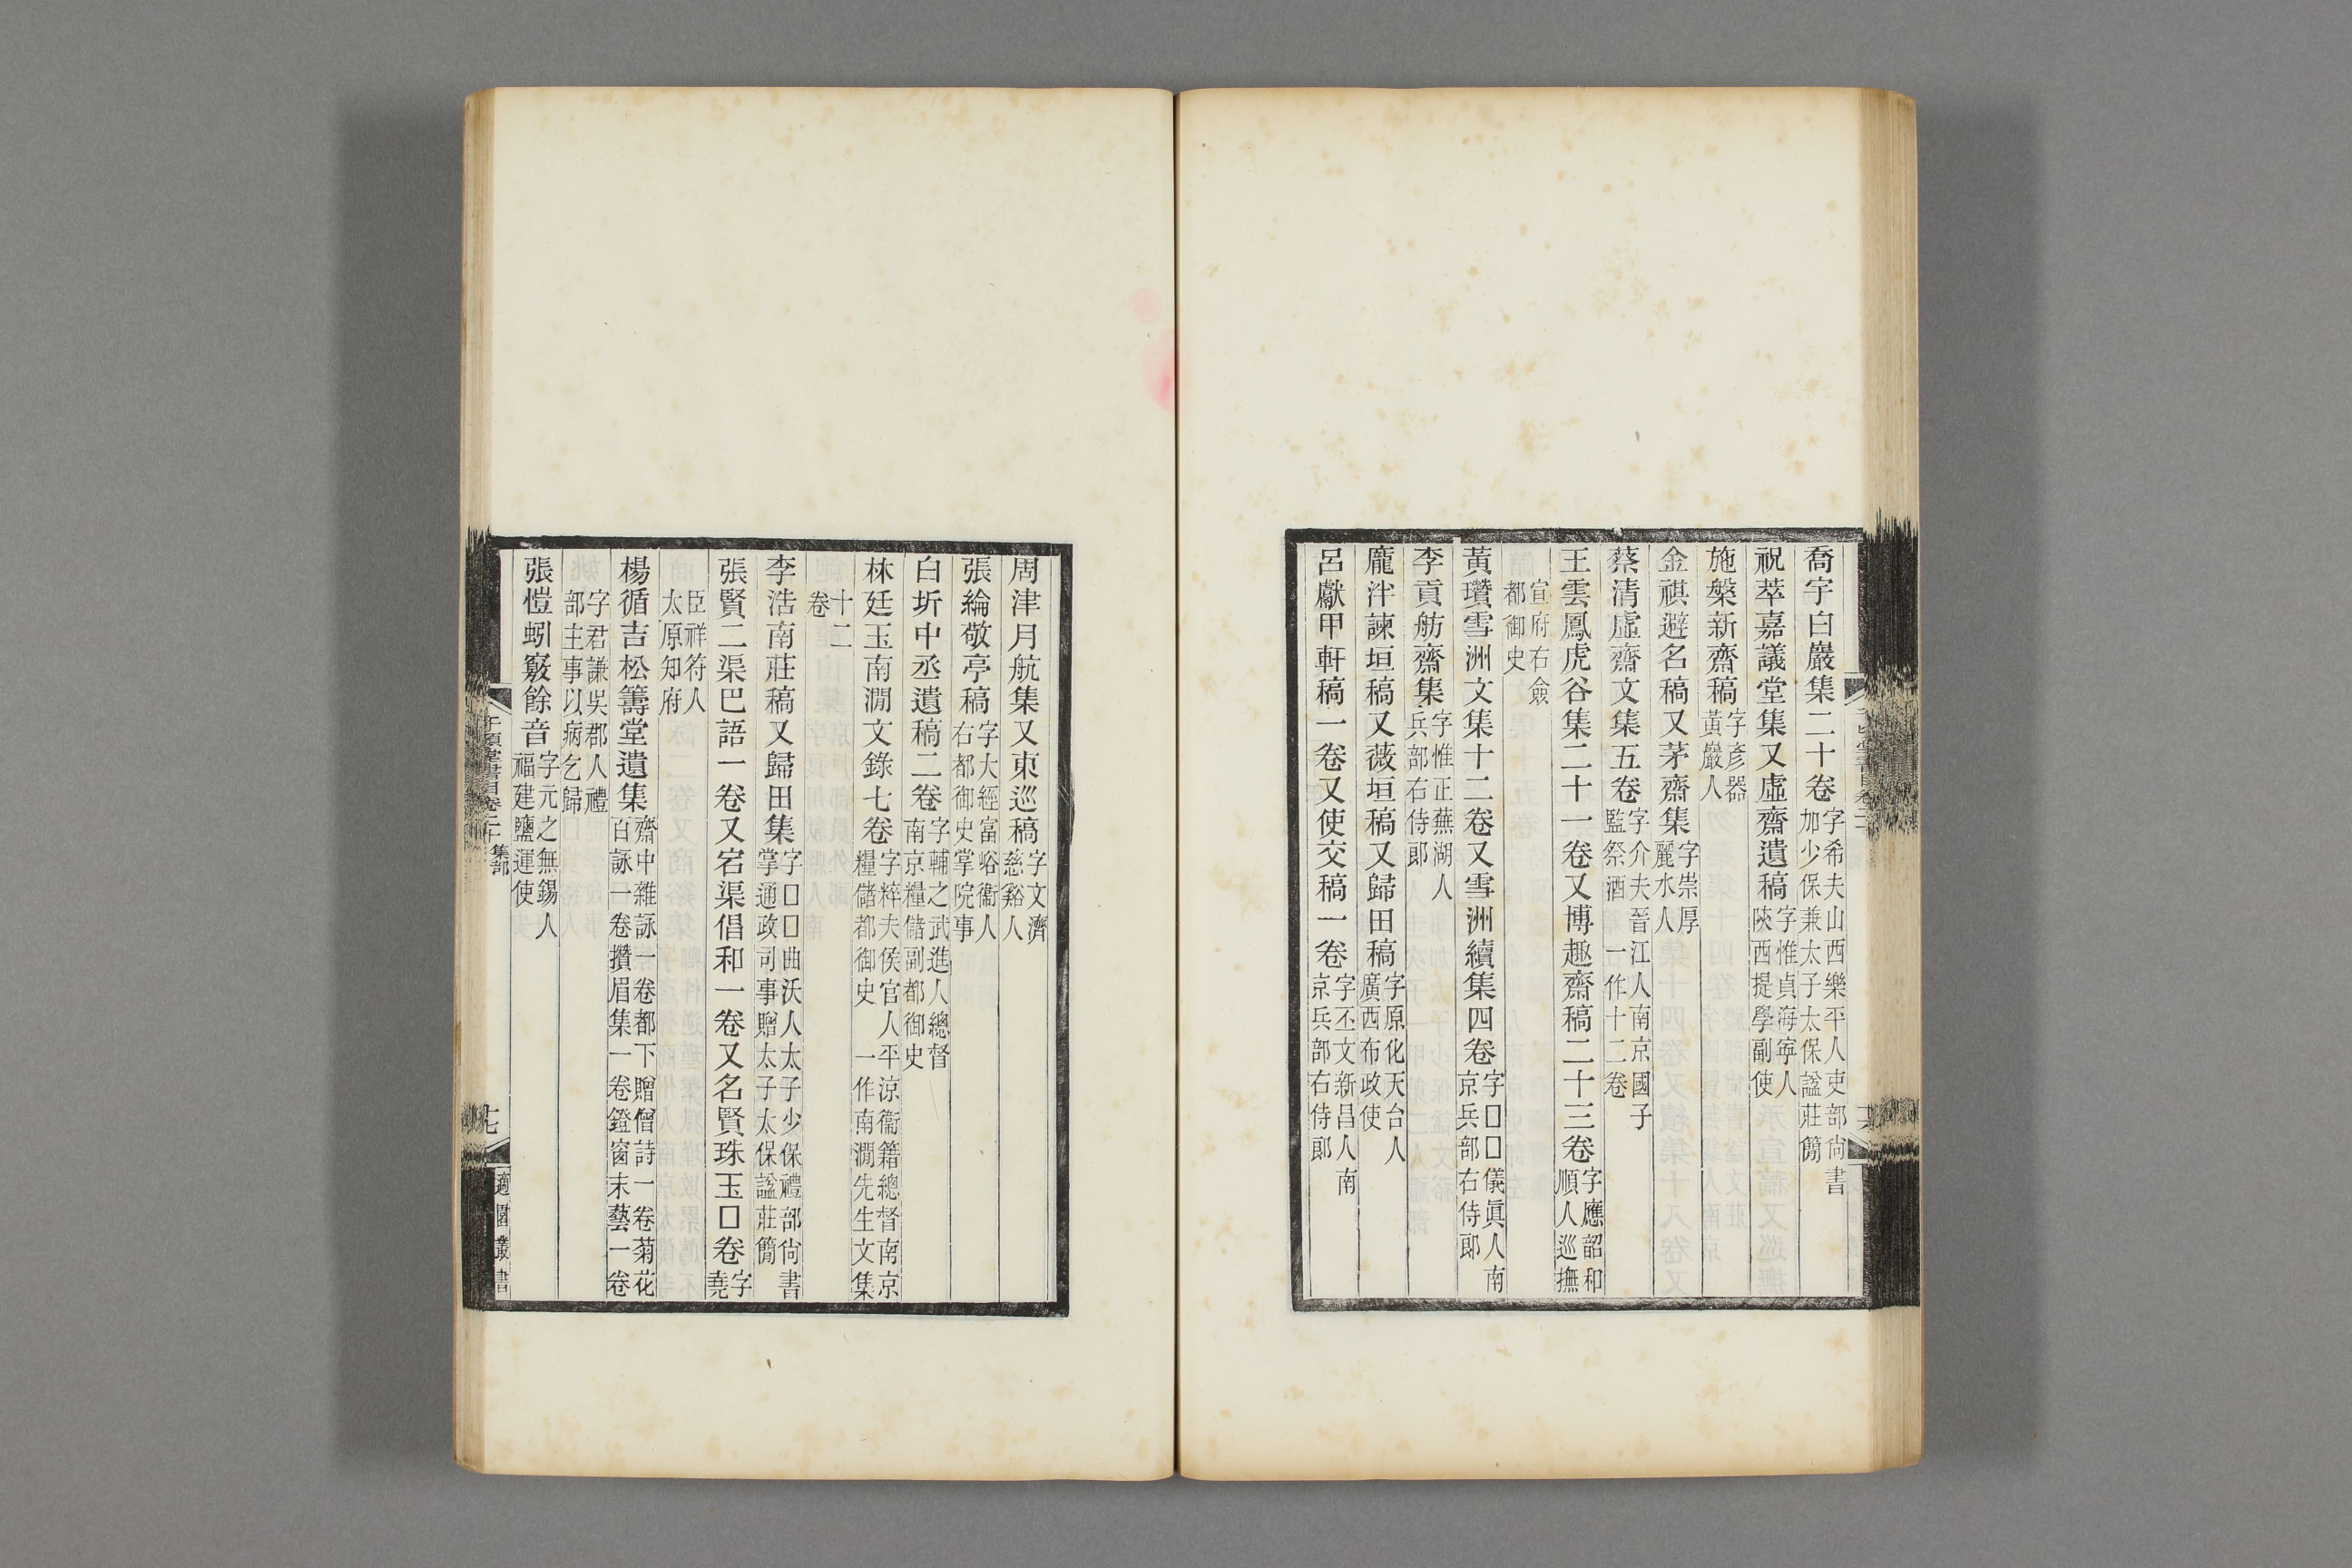 喬宇白巖集二十卷字希夫山西樂平人吏部尙書加少保兼太子太保諡莊簡
祝萃嘉議堂集又虛齋遺稿字惟貞海寧人陝西提學副使
施槃新齋稿字彥器黃巖人
金祺避名稿又茅齋集字崇厚麗水人
蔡清虛齋文集五卷字介夫晉江人南京國子監祭酒一作十二卷
王雲鳳虎谷集二十一卷又博趣齋稿二十三卷字應韶和順人巡撫
宣府右僉都御史
黃瓚雪洲文集十二卷又雪洲續集四卷字囗囗儀眞人南京兵部右侍郞
李貢舫齋集字惟正蕪湖人兵部右侍郞
龐泮諫垣稿又薇垣稿又歸田稿字原化天台人廣西布政使
呂獻甲軒稿一卷又使交稿一卷字丕文新昌人南京兵部右侍郞
周津月航集又東巡稿字文濟慈谿人
張綸敬亭稿字大經富峪衞人右都御史掌院事
白圻中丞遺稿二卷字輔之武進人總督南京糧儲副都御史
林廷玉南澗文錄七卷字粹夫侯官人平涼衞籍總督南京糧儲都御史一作南澗先生文集
十二卷
李浩南莊稿又歸田集字囗囗曲沃人太子少保禮部尙書掌通政司事贈太子太保諡莊簡
張賢二渠巴語一卷又宕渠倡和一卷又名賢珠玉囗卷字堯
臣祥符人太原知府
楊循吉松籌堂遺集齋中雜詠一卷都下贈僧詩一卷菊花百詠一卷攢眉集一卷鐙窗末藝一卷
字君謙吳郡人禮部主事以病乞歸
張愷蚓竅餘音字元之無錫人福建鹽運使
千頃堂書目卷二十集部
十七
適園叢書